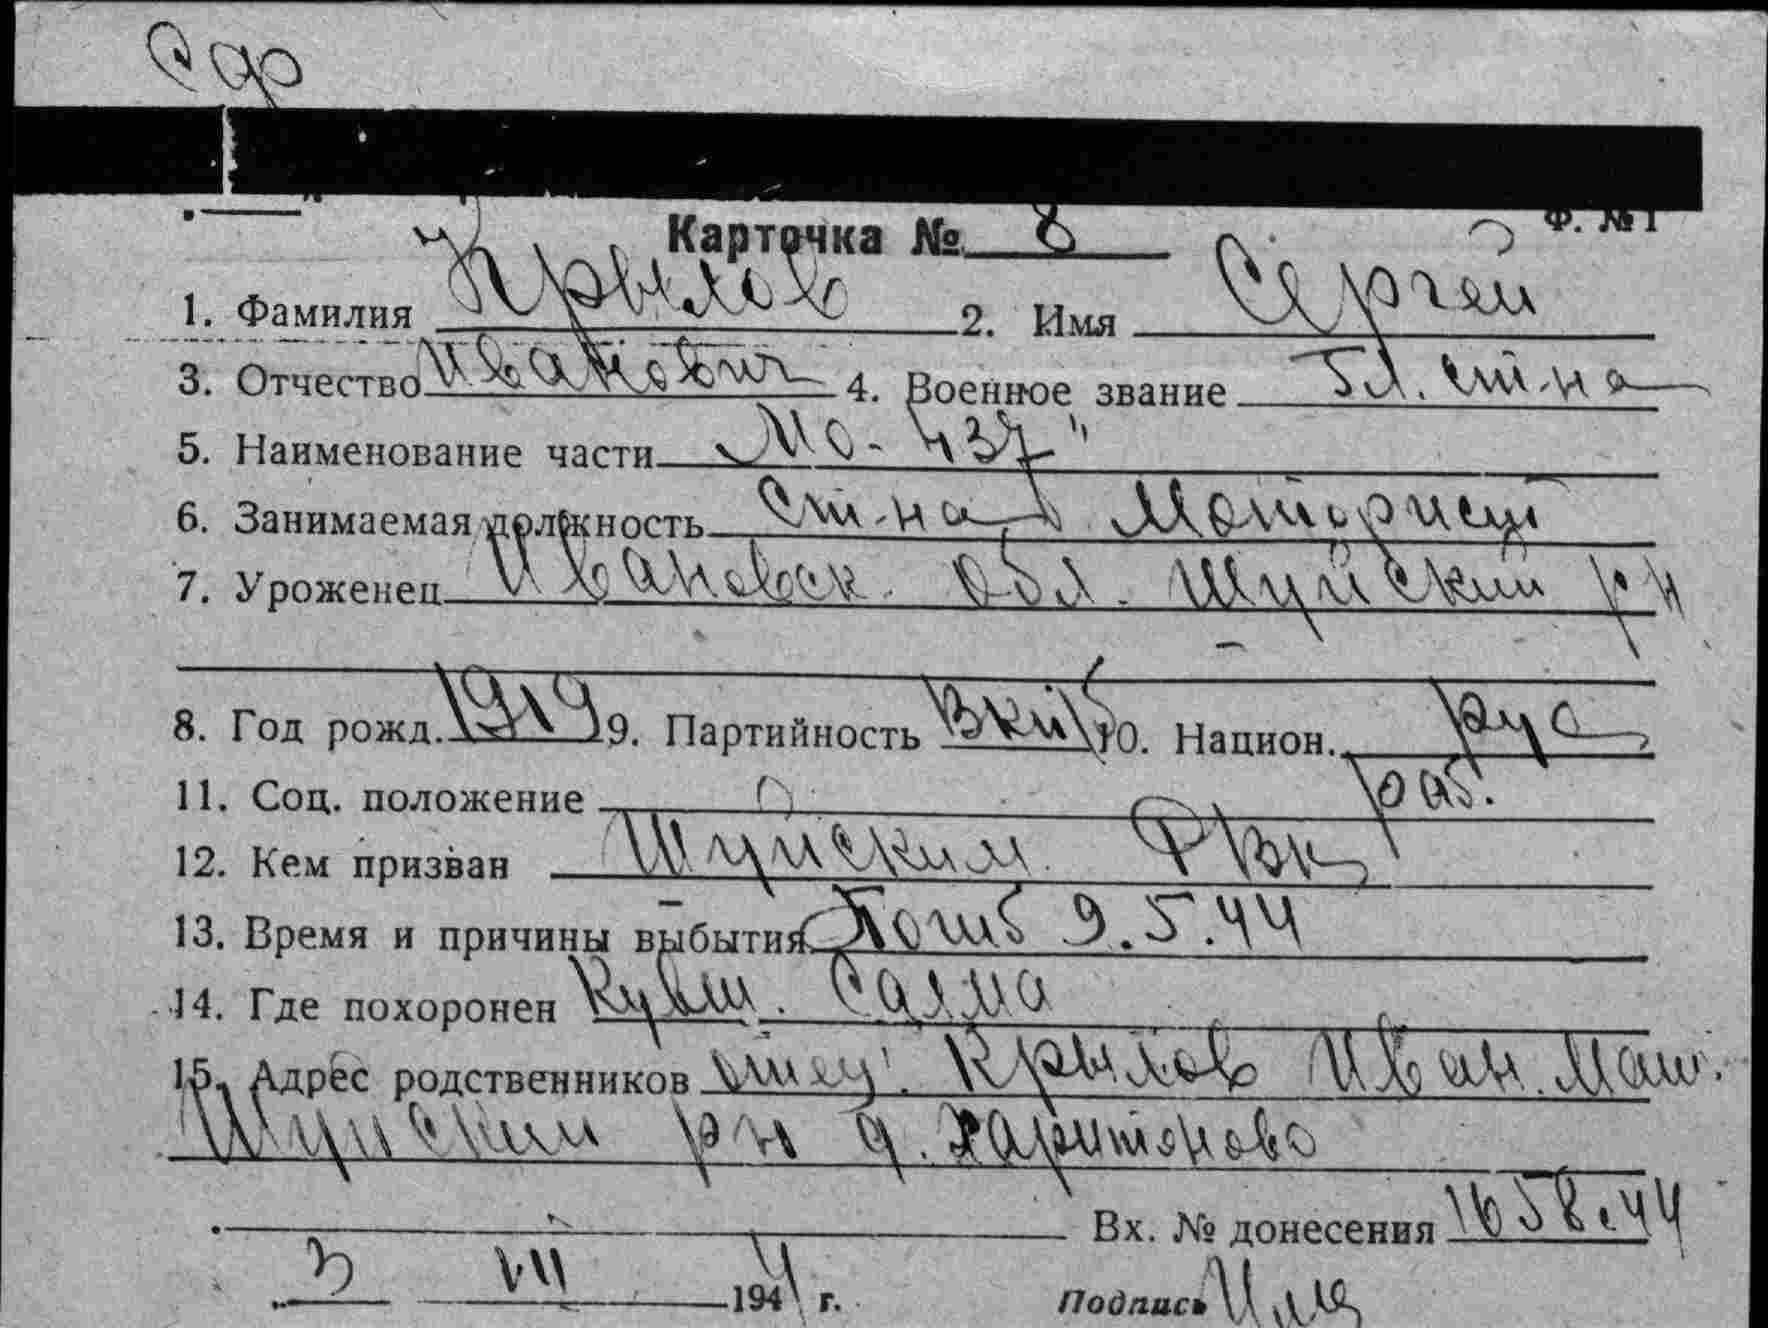 Ф. №1
Карточка № 8
1. Фамилия Крылов 2. Имя Сергей
3. Отчество Иванович 4. Военное звание Гл. ст-на
5. Наименование части „МО-437"
6. Занимаемая должность Ст-на Моторист
7. Уроженец Ивановск. обл. Шуйский р-н
8. Год рожд. 1919 9. Партийность ВКПб 10. Национ. рус
11. Соц. положение раб.
12. Кем призван Шуйским РВК
13. Время и причины выбытия Погиб 9.5.44
14. Где похоронен
15. Адрес родственников отец. Крылов Иван. Мат.
Шуйский р-н д. Харитоново
Вх. № донесения 1658.44
3 VIII 1944 г. Подпись